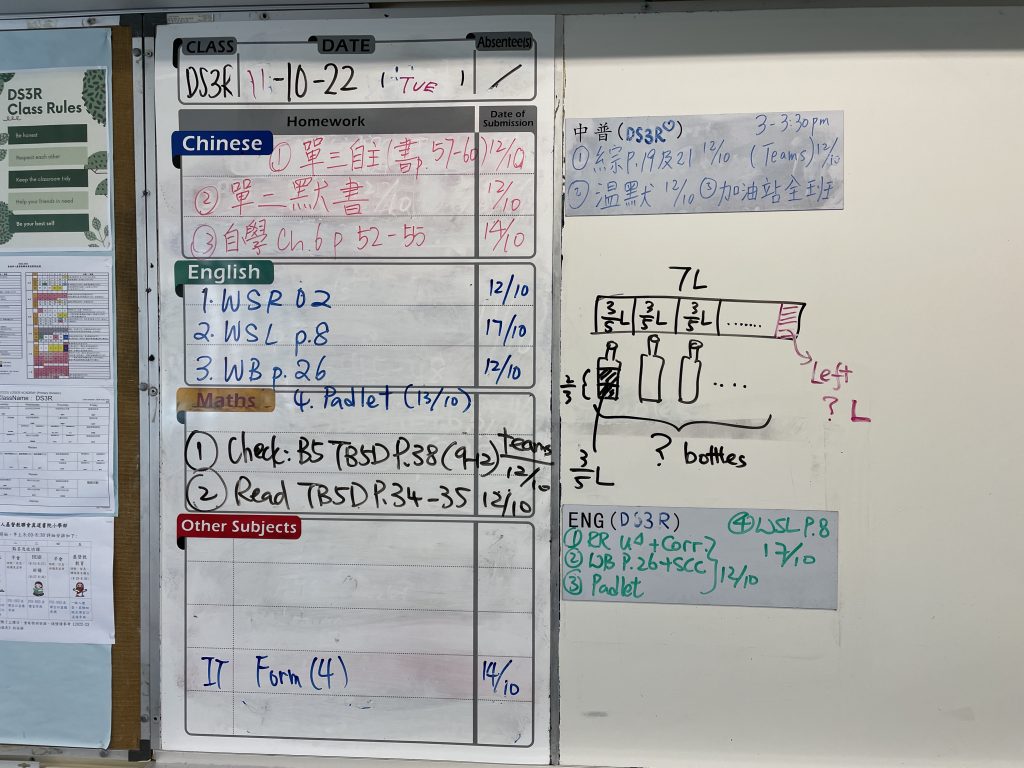 DS3R
Class Rules
Be honest
Respect each other
Keep the classroom tidy
Help your friends in need
Be your best self
ClassName : DS3R
CLASS DATE Absentee(s)
DS3R 11-10-22 ( TUE ) /
Homework Date of Submission
Chinese
① 單三自主(書p. 57-60) 12/10
② 單二默書 12/10
③ 自學 Ch.6 p 52-55 14/10
English
1. WSR 02 12/10
2. WSL p.8 17/10
3. WB p.26 12/10
Maths 4. Padlet (13/10)
① Check: B5 TB5D P.38 (9-12) teams 12/10
② Read TB5D P.34-35 12/10
Other Subjects
IT Form (4) 14/10
中普(DS3R♡) 3-3:30pm
① 綜P.19及21 12/10 (Teams) 12/10
② 溫默 12/10 ③加油站全班
7L
3/5 L 3/5 L 3/5 L .......
Left
? L
2/3 ....
? bottles
3/5 L
ENG (DS3R) ④ WSL P.8
17/10
① RR U4+Corr
② WB P.26+SCC 12/10
③ Padlet